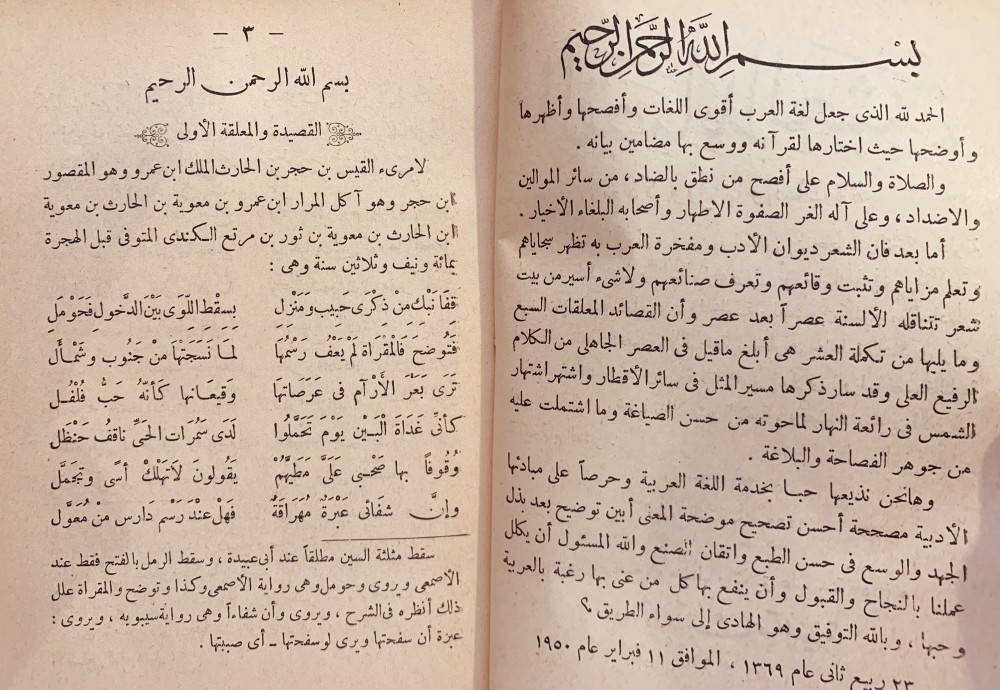 بسم الله الرحمن الرحيم
الحمد لله الذى جعل لغة العرب أقوى اللغات وأفصحها وأظهرها
وأوضحها حيث اختارها لقرآنه ووسع بها مضامين بيانه .
والصلاة والسلام على أفصح من نطق بالضاد ، من سائر الموالين
والاضداد ، وعلى آله الغر الصفوة الاطهار وأصحابه البلغاء الأخيار .
أما بعد فان الشعر ديوان الأدب ومفخرة العرب به تظهر سجاياهم
وتعلم مزاياهم وتثبت وقائعهم وتعرف صنائعهم ولاشىء أسير من بيت
شعر تتناقله الألسنة عصراً بعد عصر وأن القصائد المعلقات السبع
وما يليها من تكملة العشر هى أبلغ ماقيل فى العصر الجاهلى من الكلام
الرفيع العلى وقد سار ذكرها مسير المثل فى سائر الأقطار واشتهر اشتهار
الشمس فى رائعة النهار لماحوته من حسن الصياغة وما اشتملت عليه
من جوهر الفصاحة والبلاغة .
وهانحن نذيعها حبـا بخدمة اللغة العربية وحرصاً على مبادئها
الأدبية مصححة أحسن تصحيح موضحة المعنى أبين توضيح بعد بذل
الجهد والوسع فى حسن الطبع واتقان الصنع والله المسئول أن يكلل
عملنا بالنجاح والقبول وأن ينفع بها كل من عنى بها رغبة بالعربية
وحبها ، وبالله التوفيق وهو الهادى إلى سواء الطريق ؟
٢٣ ربيع ثانى عام ١٣٦٩ ، الموافق ١١ فبراير عام ١٩٥٠
— ٣ —
بسم الله الرحمن الرحيم
القصيدة والمعلقة الأولى
لامرىء القيس بن حجر بن الحارث الملك ابن عمرو وهو المقصور
ابن حجر وهو آكل المرار ابن عمرو بن معوية بن الحارث بن معوية
ابن الحارث بن معوية بن ثور بن مرتع الكندى المتوفى قبل الهجرة
بمائة ونيف وثلاثين سنة وهى :
قِفَا نَبْكِ مِنْ ذِكْرَى حَبِيبٍ وَمَنْزِلِ بِسِقْطِ اللِّوَى بَيْنَ الدَّخُولِ فَحَوْمَلِ
فَتُوضِحَ فَالْمِقْرَاةِ لَمْ يَعْفُ رَسْمُهَا لِمَا نَسَجَتْهَا مِنْ جَنُوبٍ وَشَمْـأَلِ
تَرَى بَعَرَ الْأَرْآمِ فى عَرَصَاتِهَا وَقِيعَـانِهَا كَأَنَّهُ حَبُّ فُلْفُـلِ
كَأَنِّى غَدَاةَ الْبَـيْنِ يَوْمَ تَحَمَّلُوا لَدَى سَمُرَاتِ الْحَىِّ نَاقِفُ حَنْظَلِ
وُقُوفاً بِهَا صَحْبِى عَلَىَّ مَطِيَّهُمْ يَقُولُونَ لاَتَهْلِكْ أَسًى وَتَجَمَّلِ
وَإِنَّ شِفَائى عَبْرَةٌ مُهَرَاقَةٌ فَهَلْ عِنْدَ رَسْمٍ دَارِسٍ مِنْ مُعَوَّلِ
سقط مثلثة السين مطلقاً عند أبى عبيدة ، وسقط الرمل بالفتح فقط عند
الأصمعى ويروى وحومل وهى رواية الأصمعى وكذا وتوضح والمقراة علل
ذلك أنظره فى الشرح ، ويروى وأن شفاءاً وهى رواية سيبويه ، ويروى :
عبرة أن سفحتها ويرى لو سفحتها ـ أى صببتها .